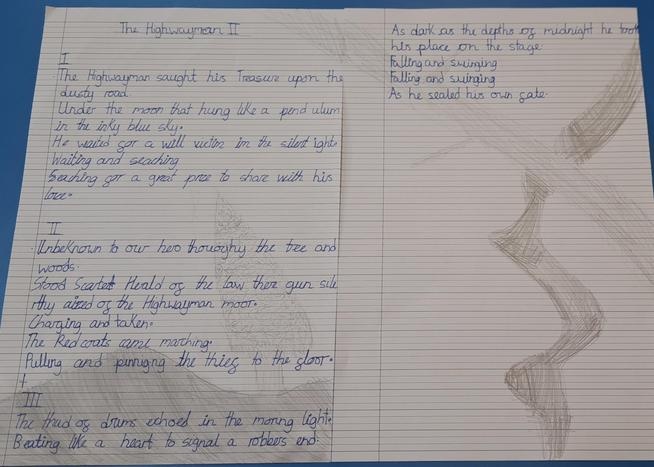 The Highwayman II
I
The Highwayman saught his Treasure upon the
dusty road.
Under the moon that hung like a pendulum
in the inky blue sky.
He waited for a will victim in the silent ight.
Waiting and seaching
Seaching for a great prize to share with his
love.
II
Unbeknown to our hero thoughy the tree and
woods.
Stood Scarlet Herald of the law ther gun sile
ntly aized of the Highwayman moor.
Charging and taken.
The Redcoats came marching.
Pulling and pinnigng the thief to the floor.
III
The thud of drums echoed in the morning light.
Beating like a heart to signal a robbers end.
As dark as the depths of midnight he took
his place on the stage.
Falling and swinging
Falling and swinging
As he sealed his own fate.